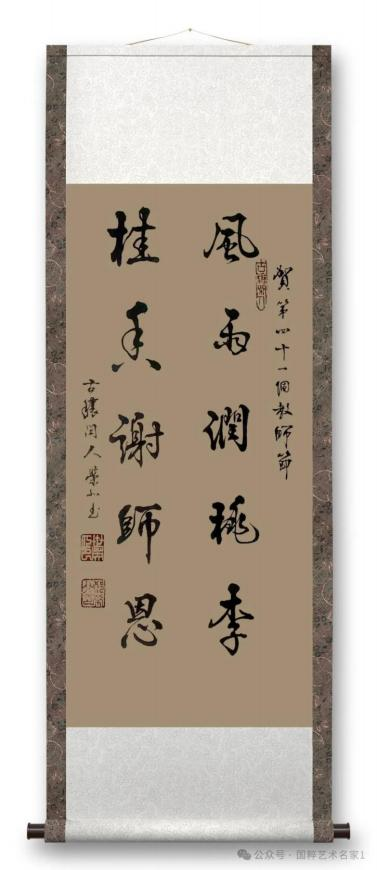 賀第四十一個教師節
風雨潤桃李
桂香謝師恩
古穰闲人
公众号·国粹艺术名家1